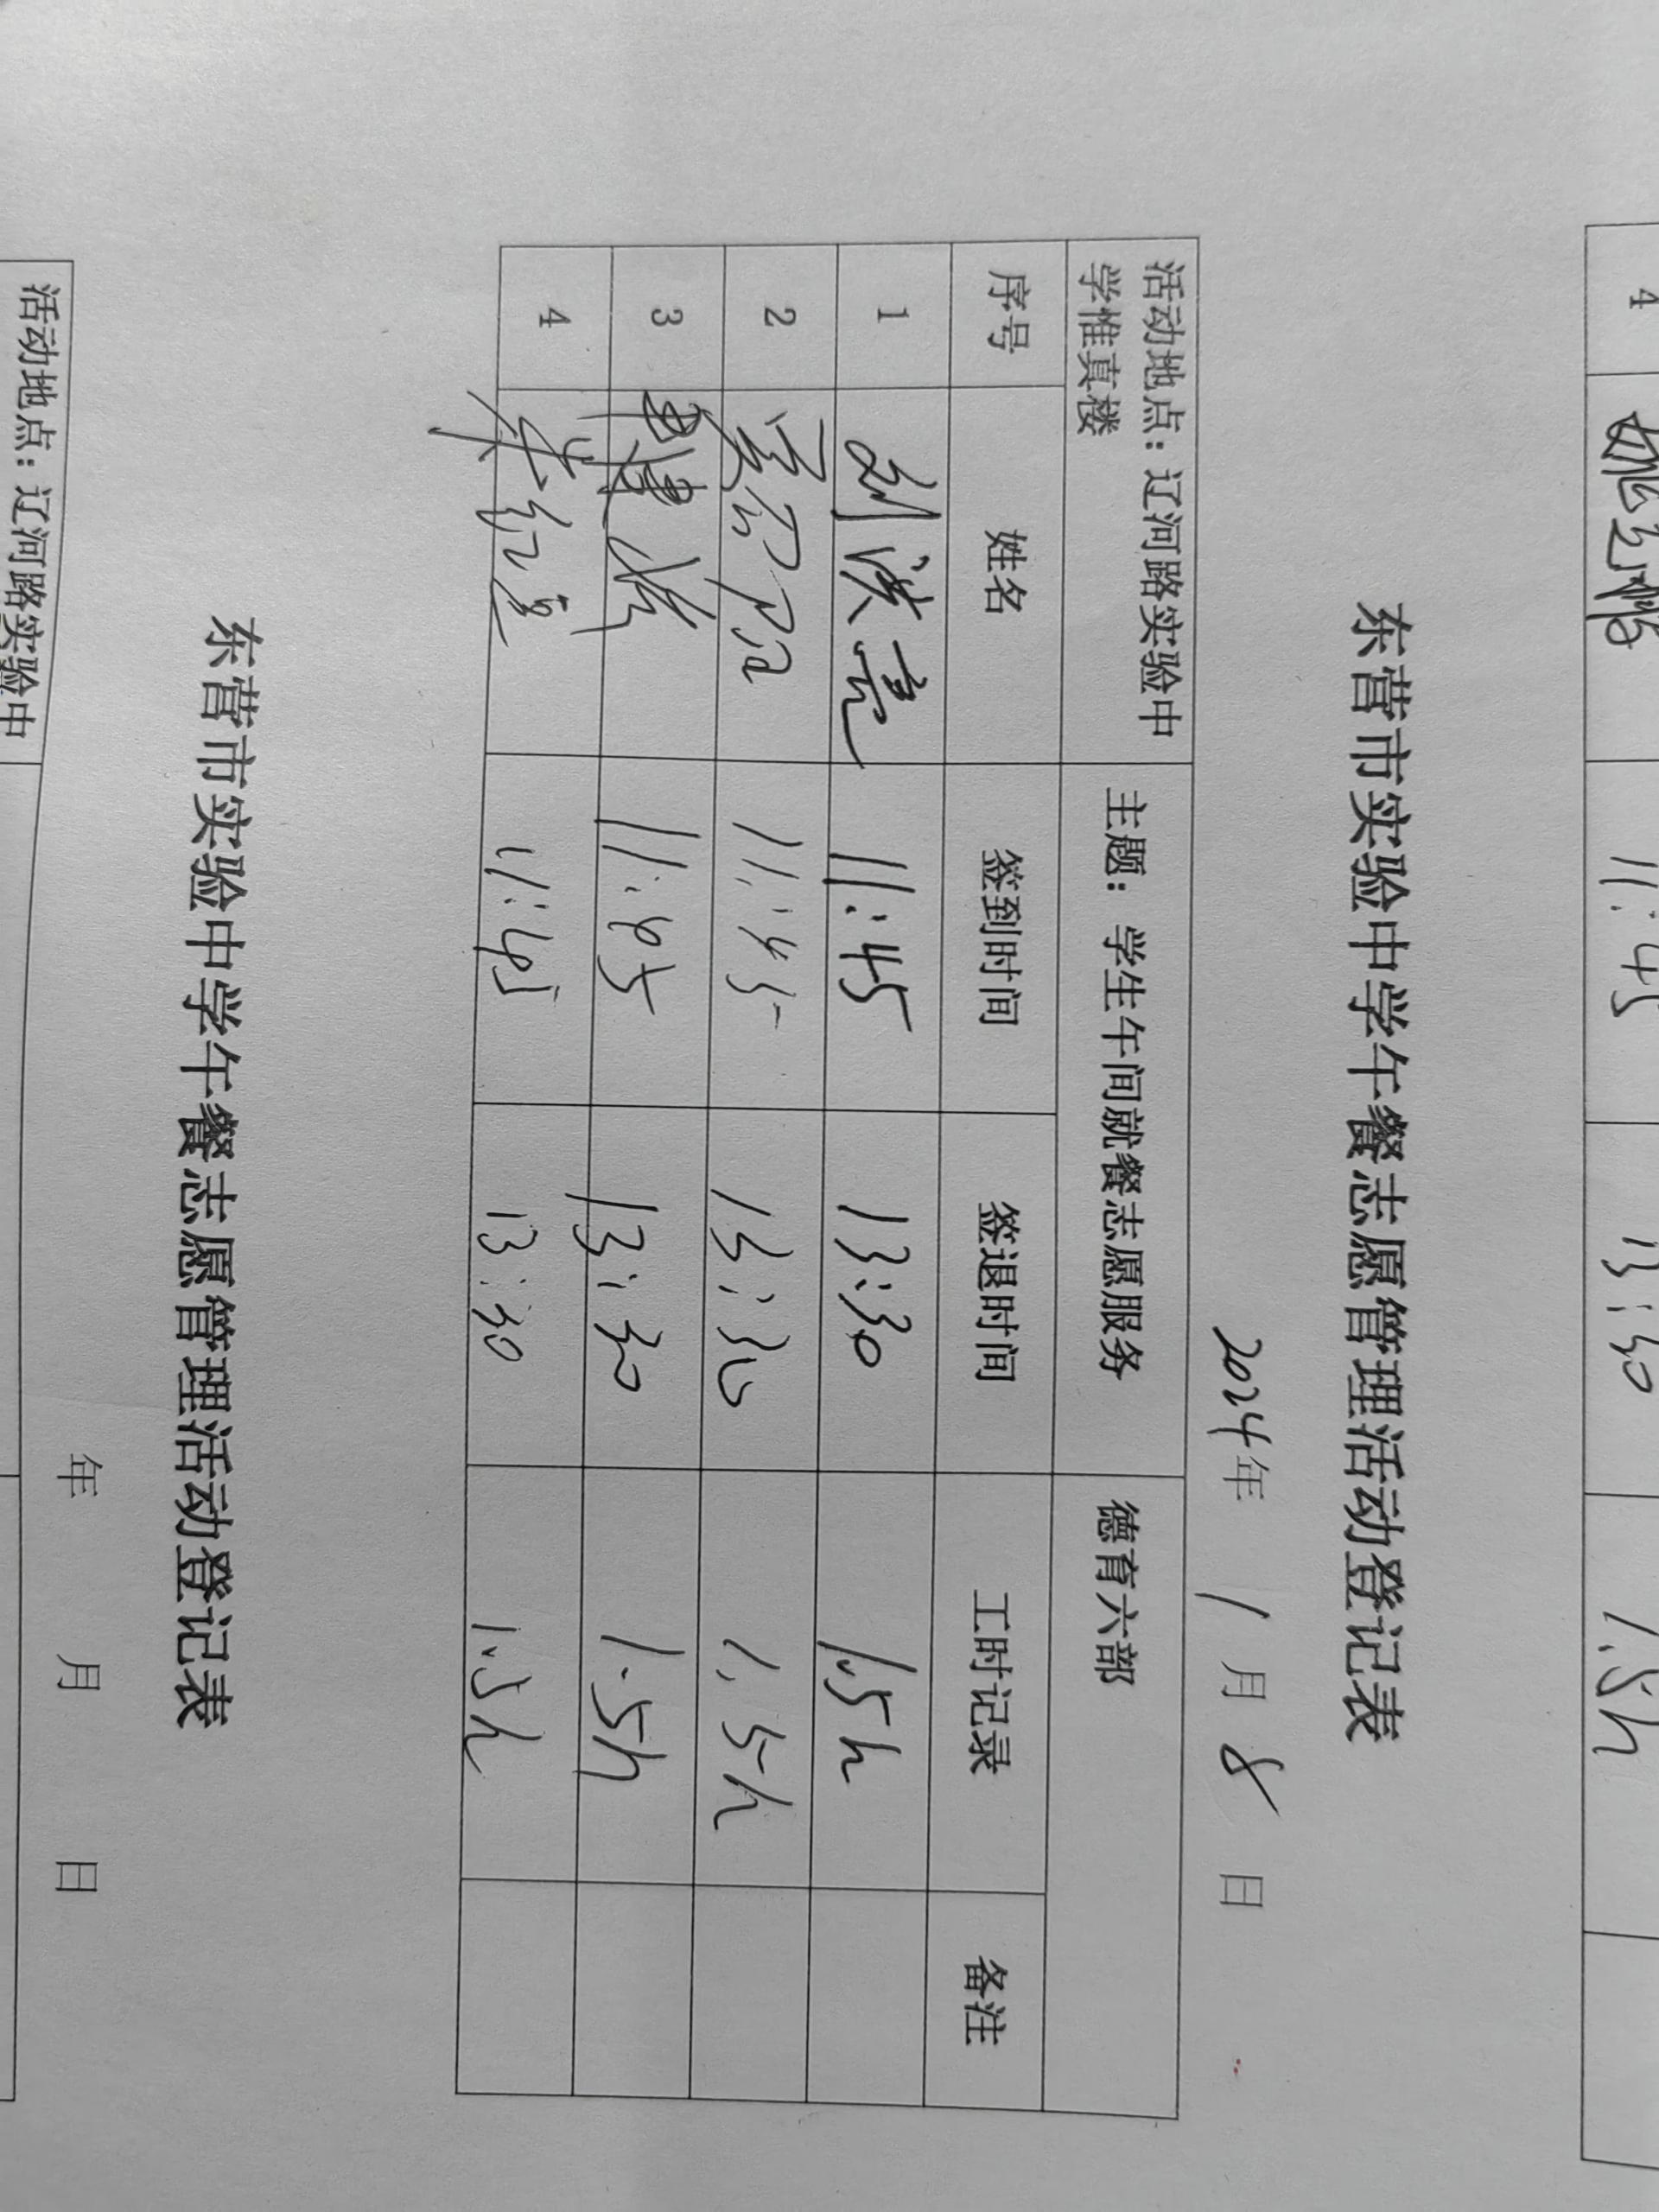 4 11:45 13:30 1.5h
东营市实验中学午餐志愿管理活动登记表
2024年 1 月 8 日
活动地点：辽河路实验中学惟真楼 主题：学生午间就餐志愿服务 德育六部
序号 姓名 签到时间 签退时间 工时记录 备注
1 刘洪亮 11:45 13:30 1.5h
2 11:45 13:30 1.5h
3 11:45 13:30 1.5h
4 11:45 13:30 1.5h
东营市实验中学午餐志愿管理活动登记表
年 月 日
活动地点：辽河路实验中